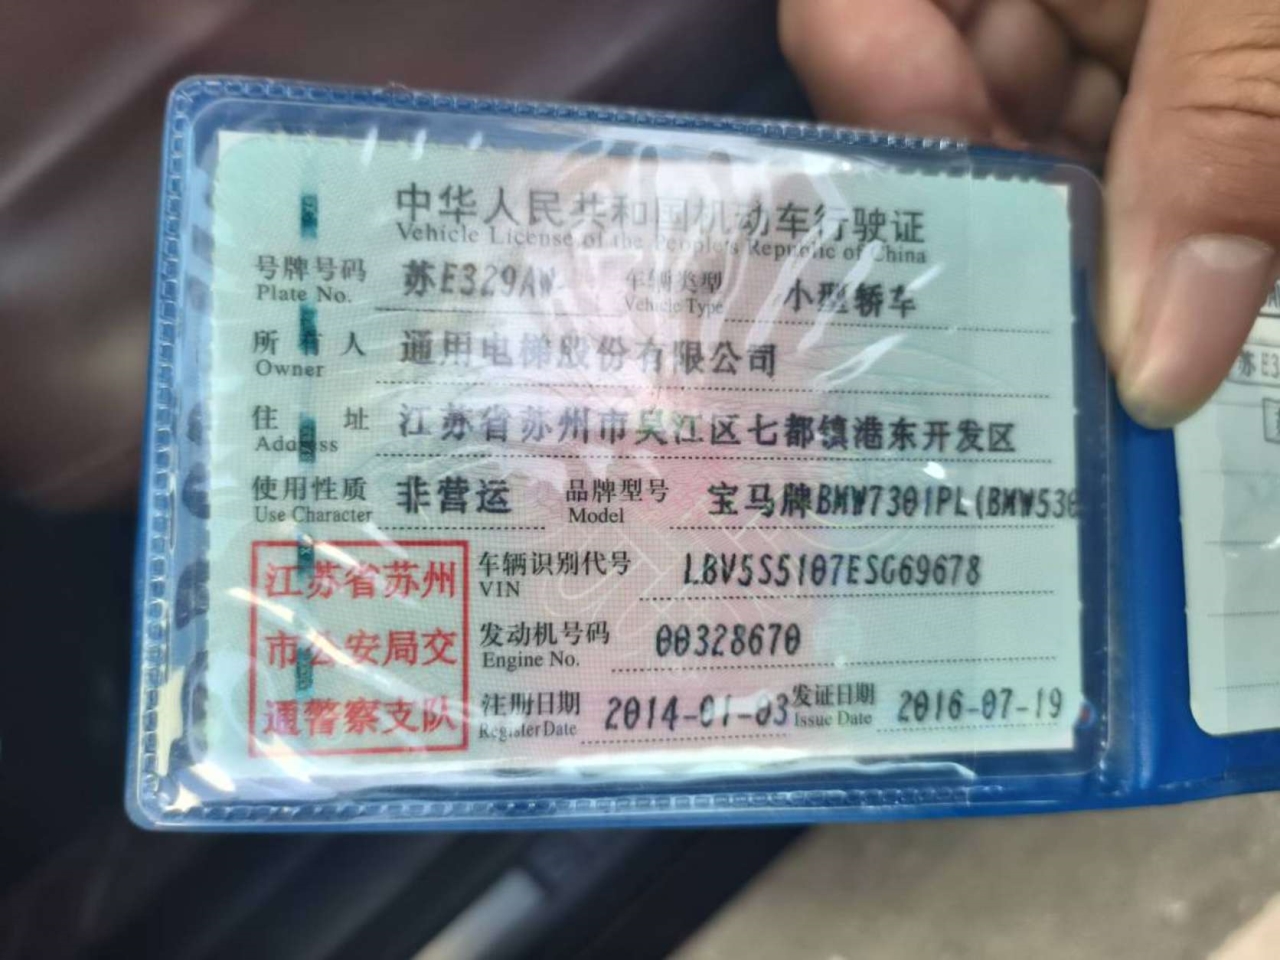 中华人民共和国机动车行驶证
Vehicle License of the People's Republic of China
号牌号码 苏E329AW 车辆类型 小型轿车
Plate No. Vehicle Type
所有人 通用电梯股份有限公司
Owner
住址 江苏省苏州市吴江区七都镇港东开发区
Address
使用性质 非营运 品牌型号 宝马牌BMW7301PL(BMW530
Use Character Model
江苏省苏州
市公安局交
通警察支队
车辆识别代号 LBV5S5107ESG69678
VIN
发动机号码 00328670
Engine No.
注册日期 2014-01-03 发证日期 2016-07-19
Register Date Issue Date
苏E3